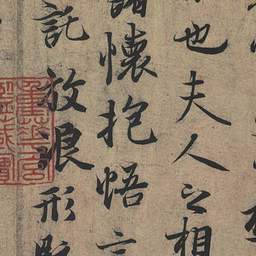 也夫人之相
諸懷抱悟言
託放浪形骸